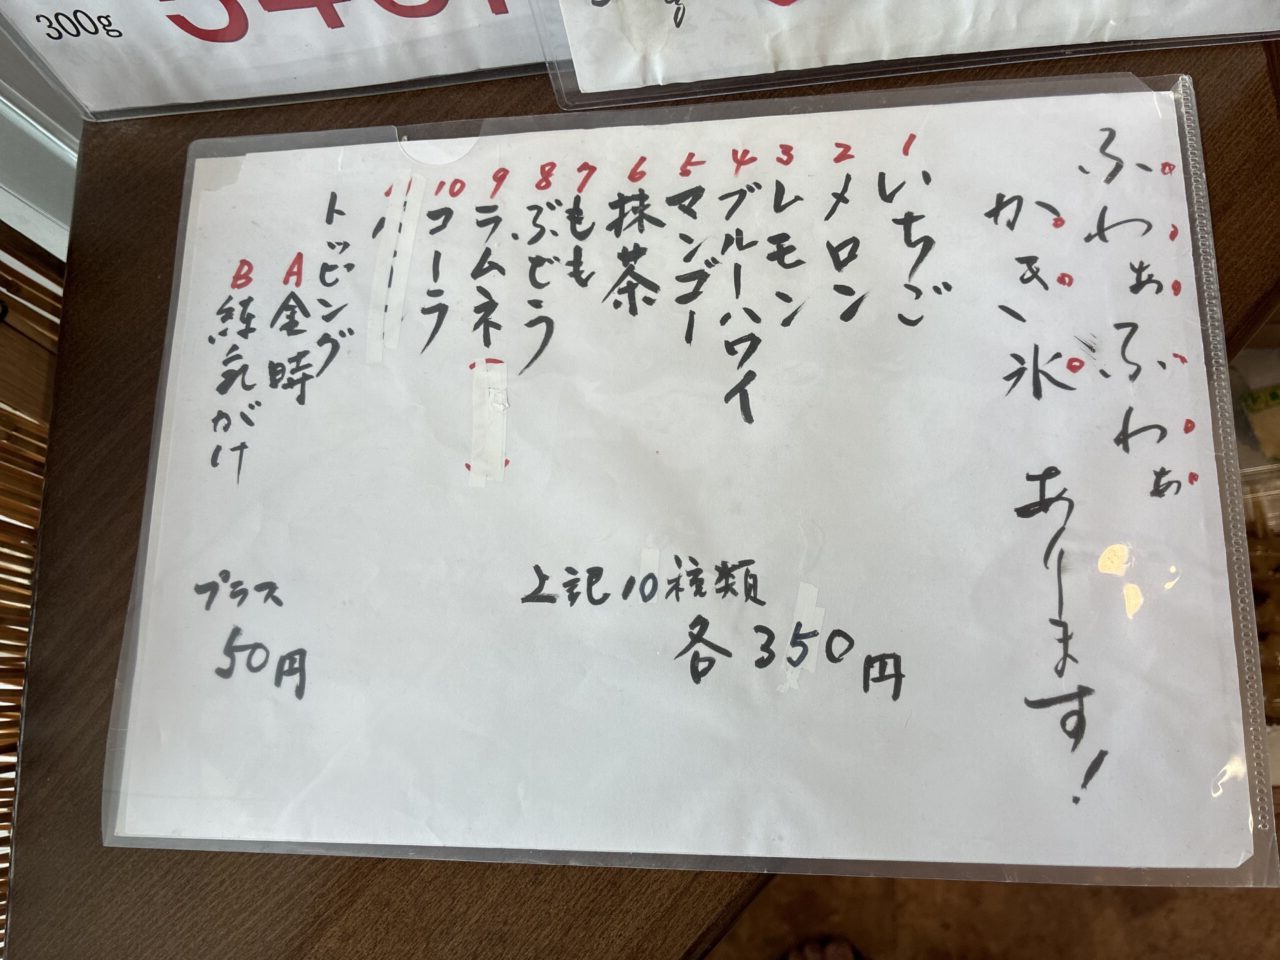 300g
ふわぁふわぁ
かき氷
あります!
1 いちご
2 メロン
3 レモン
4 ブルーハワイ
5 マンゴー
6 抹茶
7 もも
8 ぶどう
9 ラムネ
10 コーラ
上記10種類
各350円
トッピング
A 金時
B 練乳がけ
プラス
50円